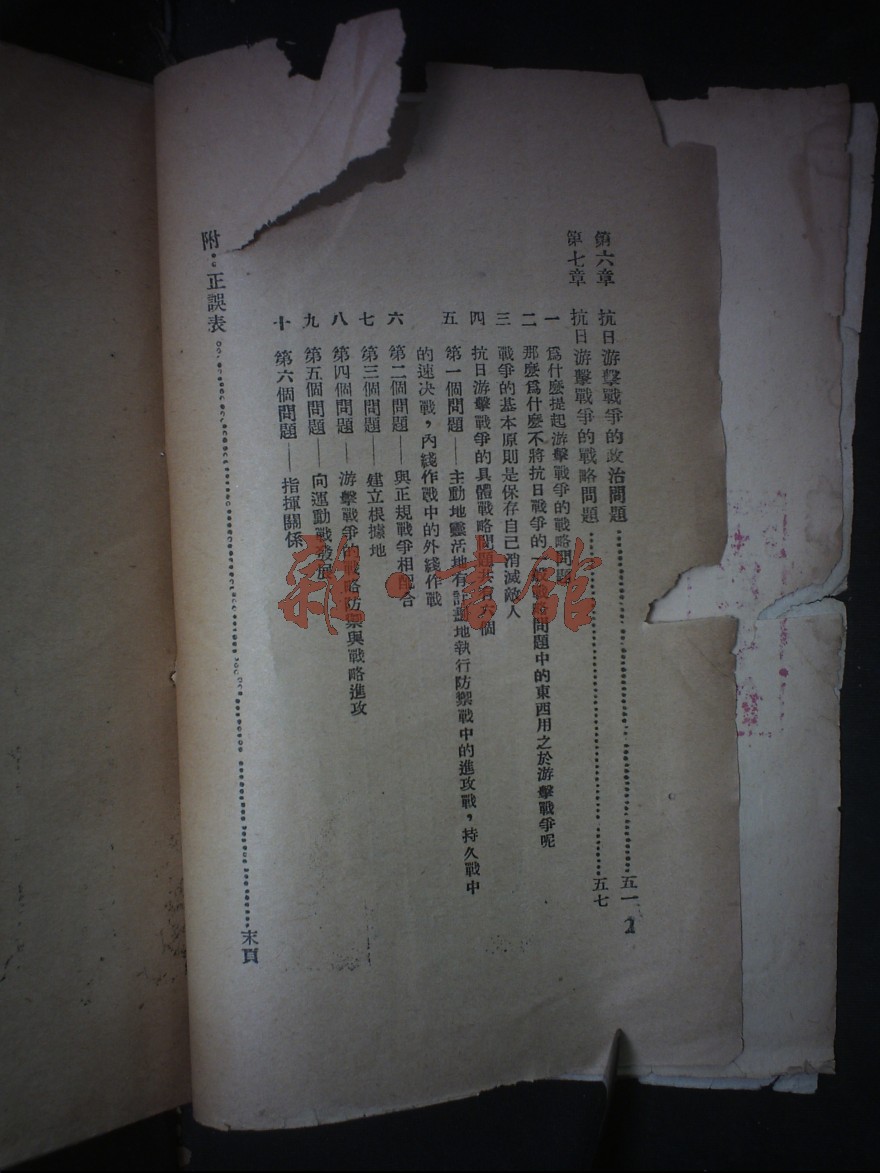 第六章 抗日游擊戰爭的政治問題……五一
第七章 抗日游擊戰爭的戰略問題……五七
一 爲什麼提起游擊戰爭的戰略問題
二 那麼爲什麼不將抗日戰爭的一般戰略問題中的東西用之於游擊戰爭呢
三 戰爭的基本原則是保存自己消滅敵人
四 抗日游擊戰爭的具體戰略問題共有六個
五 第一個問題——主動地靈活地有計劃地執行防禦戰中的進攻戰，持久戰中
的速决戰，內綫作戰中的外綫作戰
六 第二個問題——與正規戰爭相配合
七 第三個問題——建立根據地
八 第四個問題——游擊戰爭的戰略防禦與戰略進攻
九 第五個問題——向運動戰發展
十 第六個問題——指揮關係
附：正誤表……末頁
2
雜·書館